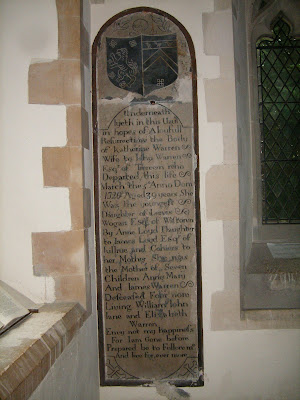 Underneath
lyeth in this Vault
in hopes of A Joyfull
Resurrection the Body
of Katherine Warren
Wife to John Warren
Esqr of Trewern who
Departed this life
March the Anno Dom
Aged 39 years She
Was the youngest
Daughter of Lewis
Wogan Esqr of Wiston
By Anne Loyd Daughter
to James Loyd Esqr of
and Coheirs to
her Mother She was
the Mother of Seven
Children Anne Mary
And James Warren
Defeated Four now
Living William John
Jane and Elizabeth
Warren
Envy not my happiness
For I am Gone before
Prepared be to Follow me
And Sin for ever more